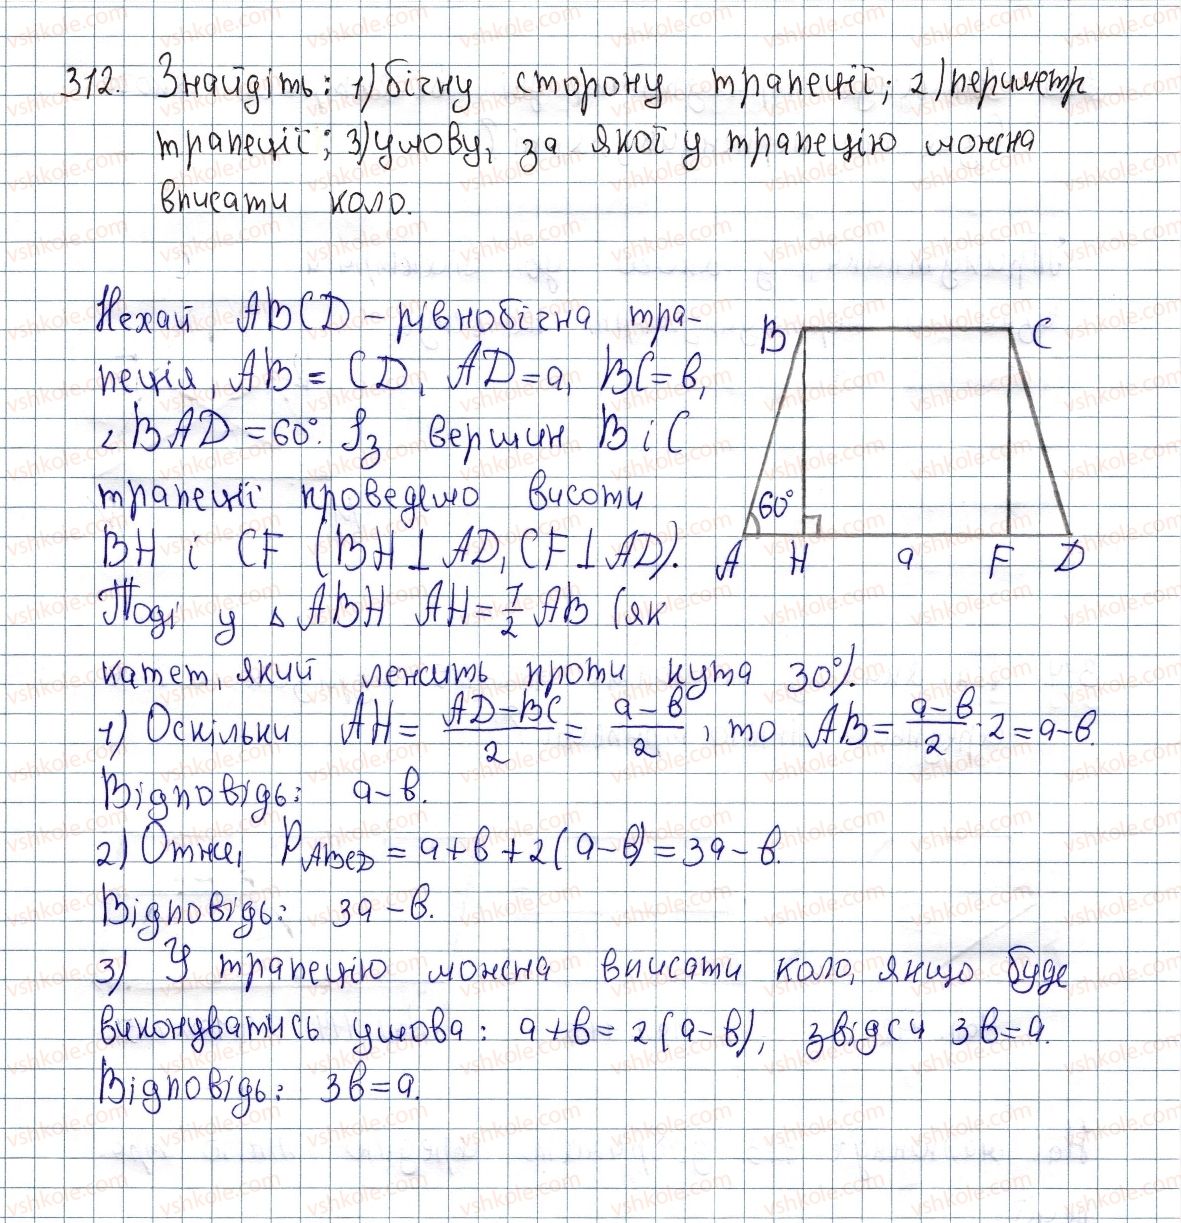 312. Знайдіть: 1) бічну сторону трапеції; 2) периметр
трапеції; 3) умову, за якої у трапецію можна
вписати коло.
Нехай ABCD – рівнобічна тра-
пеція, AB = CD, AD = a, BC = b,
∠BAD = 60°. Із вершин B і C
трапеції проведемо висоти
BH і CF (BH ⊥ AD, CF ⊥ AD).
Тоді у △ABH AH = 1/2 AB (як
катет, який лежить проти кута 30°).
1) Оскільки AH = (AD – BC)/2 = (a – b)/2, то AB = (a – b)/2 · 2 = a – b.
Відповідь: a – b.
2) Отже, P_ABCD = a + b + 2(a – b) = 3a – b.
Відповідь: 3a – b.
3) У трапецію можна вписати коло, якщо буде
виконуватись умова: a + b = 2(a – b), звідси 3b = a.
Відповідь: 3b = a.
B C
60°
A H a F D
vshkole.com